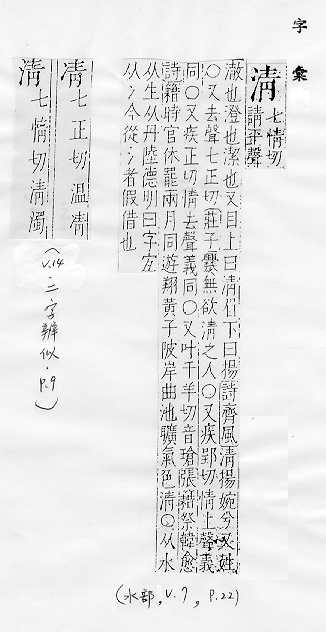 字彙
清七情切請平聲
澈也澄也潔也又目上曰清目下曰揚詩齊風清揚婉兮又姓
○又去聲七正切莊子爨無欲清之人○又疾郢切情上聲義
同○又疾正切情去聲義同○又叶千羊切音瑲張籍祭韓愈
詩籍時官休罷兩月同遊翔黃子陂岸曲池曠氣色清○从水
从生从丹陸德明曰字宜
从冫今從氵者假借也
凊七正切溫凊
清七情切清濁
(V.14·二字辨似·P.9)
(水部,V.7,P.22)